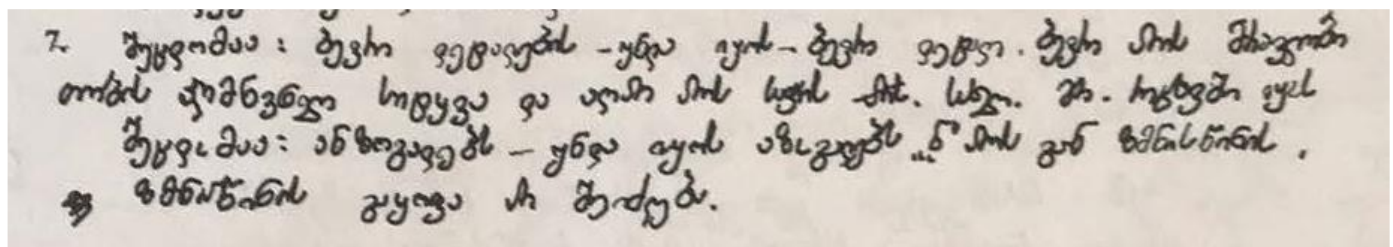 7. შეცდომაა: ბევრი დეტალების - უნდა იყოს - ბევრი დეტალი. ბევრი არის მრავლობი
თობის აღმნიშვნელი სიტყვა და აღარ არის საჭირო მრ. რიცხვში იყოს
შეცდომაა: ანზოგადებს - უნდა იყოს აზოგადებს "ნ" არის გან ზმნისწინის.
ზმნისწინის გაყოფა არ შეიძლება.